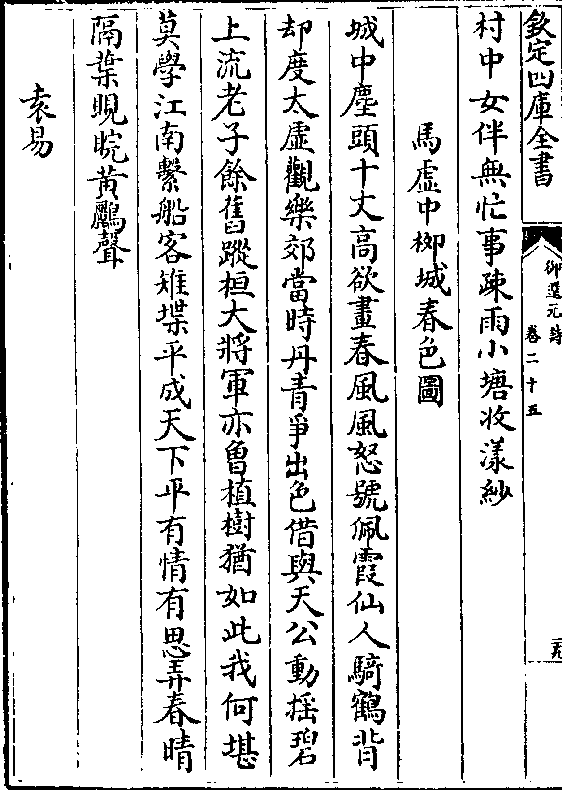 欽定四庫全書
御選元詩
卷二十五
村中女伴無忙事疎雨小塘收漾紗
馬虛中栁城春色圖
城中塵頭十丈高欲畫春風風怒號佩霞仙人騎鶴背
却度太虛觀樂郊當時丹青爭出色借與天公動揺碧
上流老子餘舊蹤桓大將軍亦曾植樹猶如此我何堪
莫學江南繫船客雉堞平成天下平有情有思弄春晴
隔葉睍睆黃鸝聲
袁易